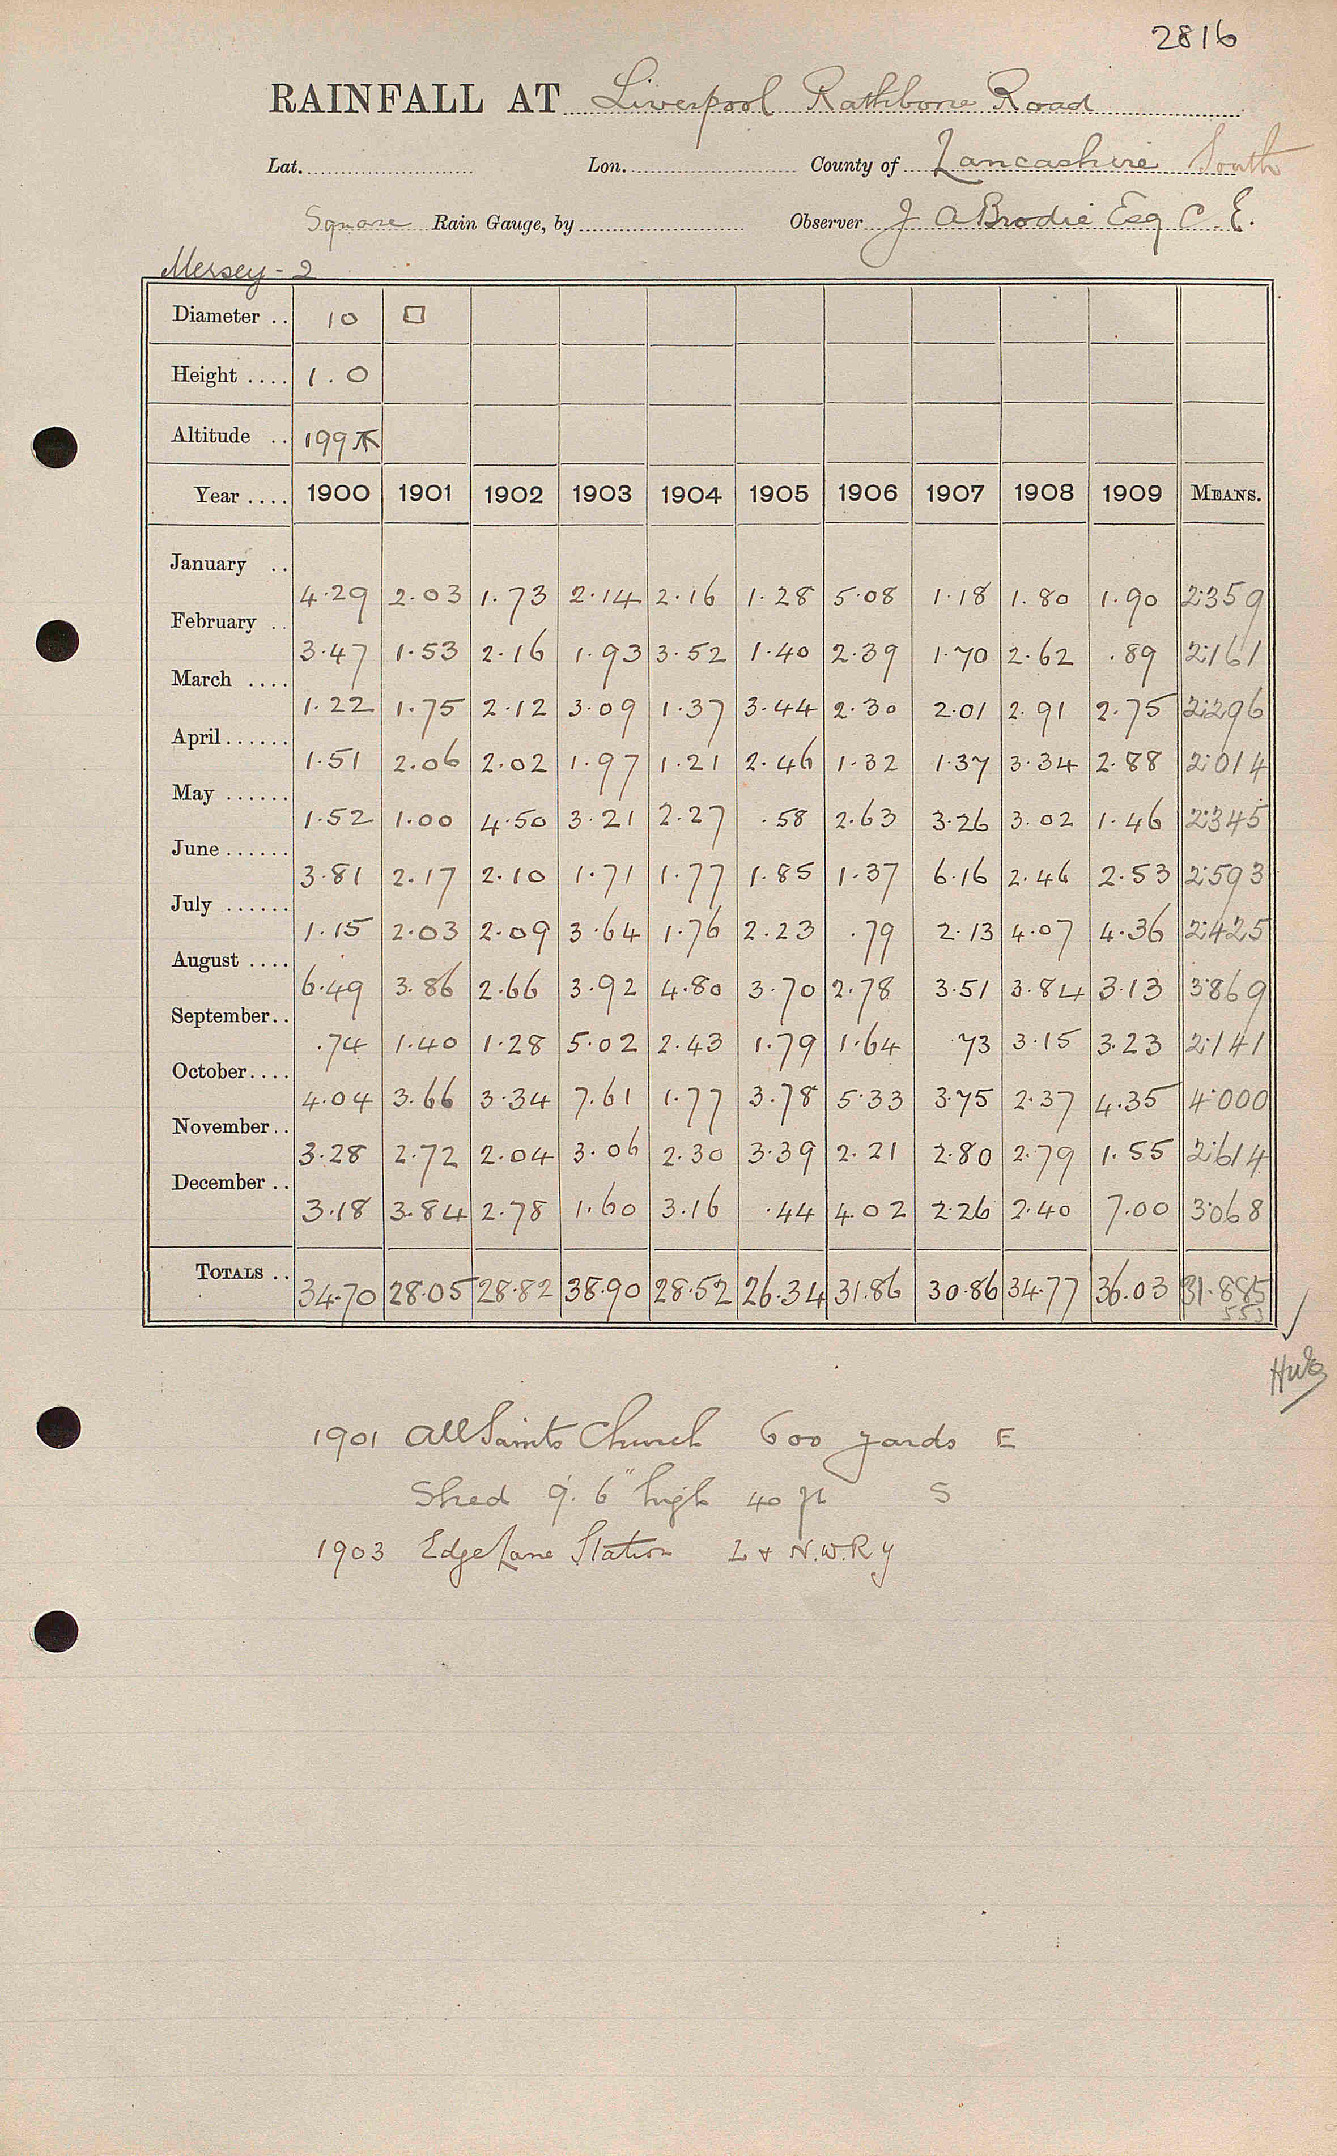 2816
RAINFALL AT Liverpool Rathbone Road
Lat. Lon. County of Lancashire South
Square Rain Gauge, by Observer J A Brodie Esq C. E.
Mersey - 2
Diameter .. 10 □
Height .... 1.0
Altitude .. 199
Year .... 1900 1901 1902 1903 1904 1905 1906 1907 1908 1909 MEANS.
January .. 4.29 2.03 1.73 2.14 2.16 1.28 5.08 1.18 1.80 1.90 2.359
February .. 3.47 1.53 2.16 1.93 3.52 1.40 2.39 1.70 2.62 .89 2.161
March .... 1.22 1.75 2.12 3.09 1.37 3.44 2.30 2.01 2.91 2.75 2.296
April...... 1.51 2.06 2.02 1.97 1.21 2.46 1.32 1.37 3.34 2.88 2.014
May ...... 1.52 1.00 4.50 3.21 2.27 .58 2.63 3.26 3.02 1.46 2.345
June...... 3.81 2.17 2.10 1.71 1.77 1.85 1.37 6.16 2.46 2.53 2.593
July ...... 1.15 2.03 2.09 3.64 1.76 2.23 .79 2.13 4.07 4.36 2.425
August .... 6.49 3.86 2.66 3.92 4.80 3.70 2.78 3.51 3.84 3.13 3.869
September.. .74 1.40 1.28 5.02 2.43 1.79 1.64 .73 3.15 3.23 2.141
October.... 4.04 3.66 3.34 7.61 1.77 3.78 5.33 3.75 2.37 4.35 4.000
November.. 3.28 2.72 2.04 3.06 2.30 3.39 2.21 2.80 2.79 1.55 2.614
December .. 3.18 3.84 2.78 1.60 3.16 .44 4.02 2.26 2.40 7.00 3.068
TOTALS .. 34.70 28.05 28.82 38.90 28.52 26.34 31.86 30.86 34.77 36.03 31.885
553
1901 All Saints Church 600 yards E
Shed 9'. 6" high 40 ft S
1903 Edge Lane Station L & N.W.Ry